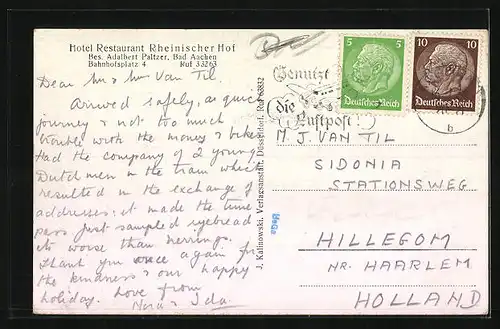 Hotel Restaurant Rheinischer Hof
Bes. Adalbert Paltzer, Bad Aachen
Bahnhofsplatz 4 Ruf 33263
Dear Mr & Mr Van Til.
Arrived safely, a quick
journey & not too much
trouble with the money & bikes.
Had the company of 2 young
Dutch men in the train which
resulted in the exchange of
addresses: it made the time
pass just sampled ryebread
its worse than herrings.
Thank you once again for
the kindness & our happy
holiday. Love from
Nora & Ida.
J. Kalinowski, Verlagsanstalt, Düsseldorf, Ruf 63832
Benutzt
die
Luftpost!
5 5
Deutsches Reich
10 10
Deutsches Reich
b
M. J. VAN TIL
SIDONIA
STATIONSWEG
HILLEGOM
NR. HAARLEM
HOLLAND